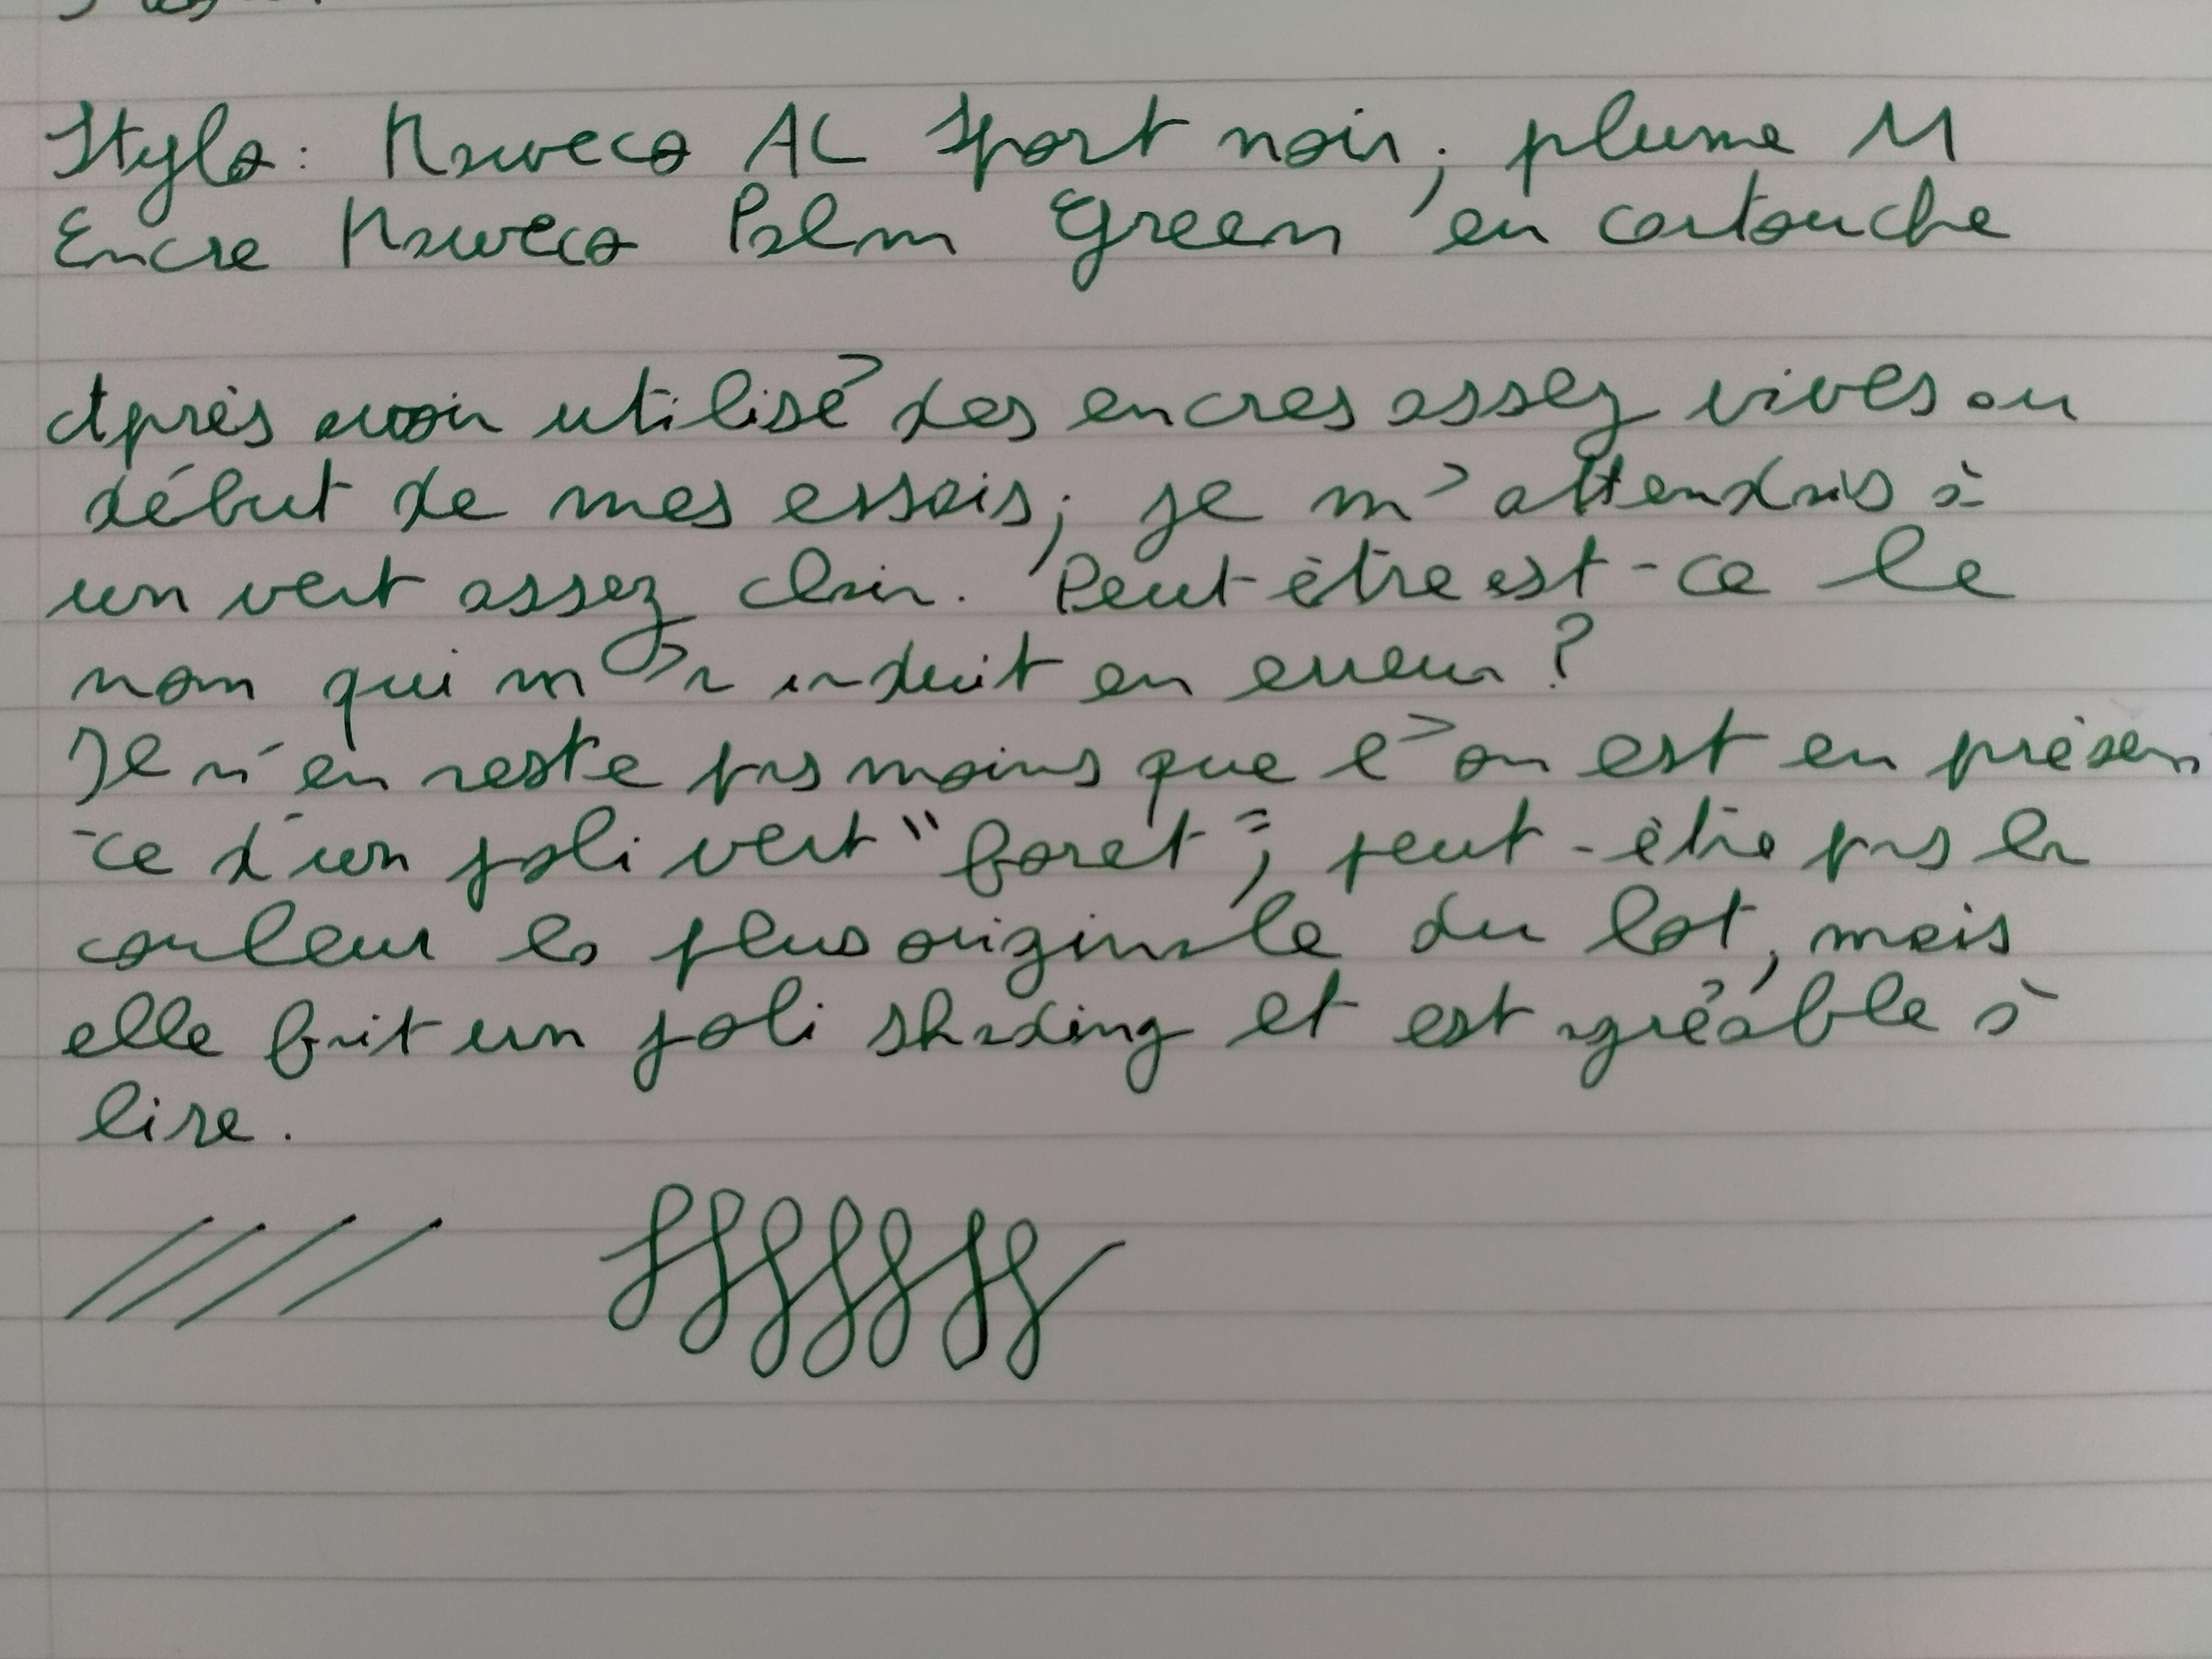 Stylo : Kaweco AC Sport noir, plume M
Encre Kaweco Palm Green en cartouche
Après avoir utilisé des encres assez vives au
début de mes essais, je m'attendais à
un vert assez clair. Peut-être est-ce le
nom qui m'a induit en erreur ?
Il n'en reste pas moins que l'on est en présen
-ce d'un joli vert "foret", peut-être pas la
couleur la plus originale du lot, mais
elle fait un joli shading et est agréable à
lire.